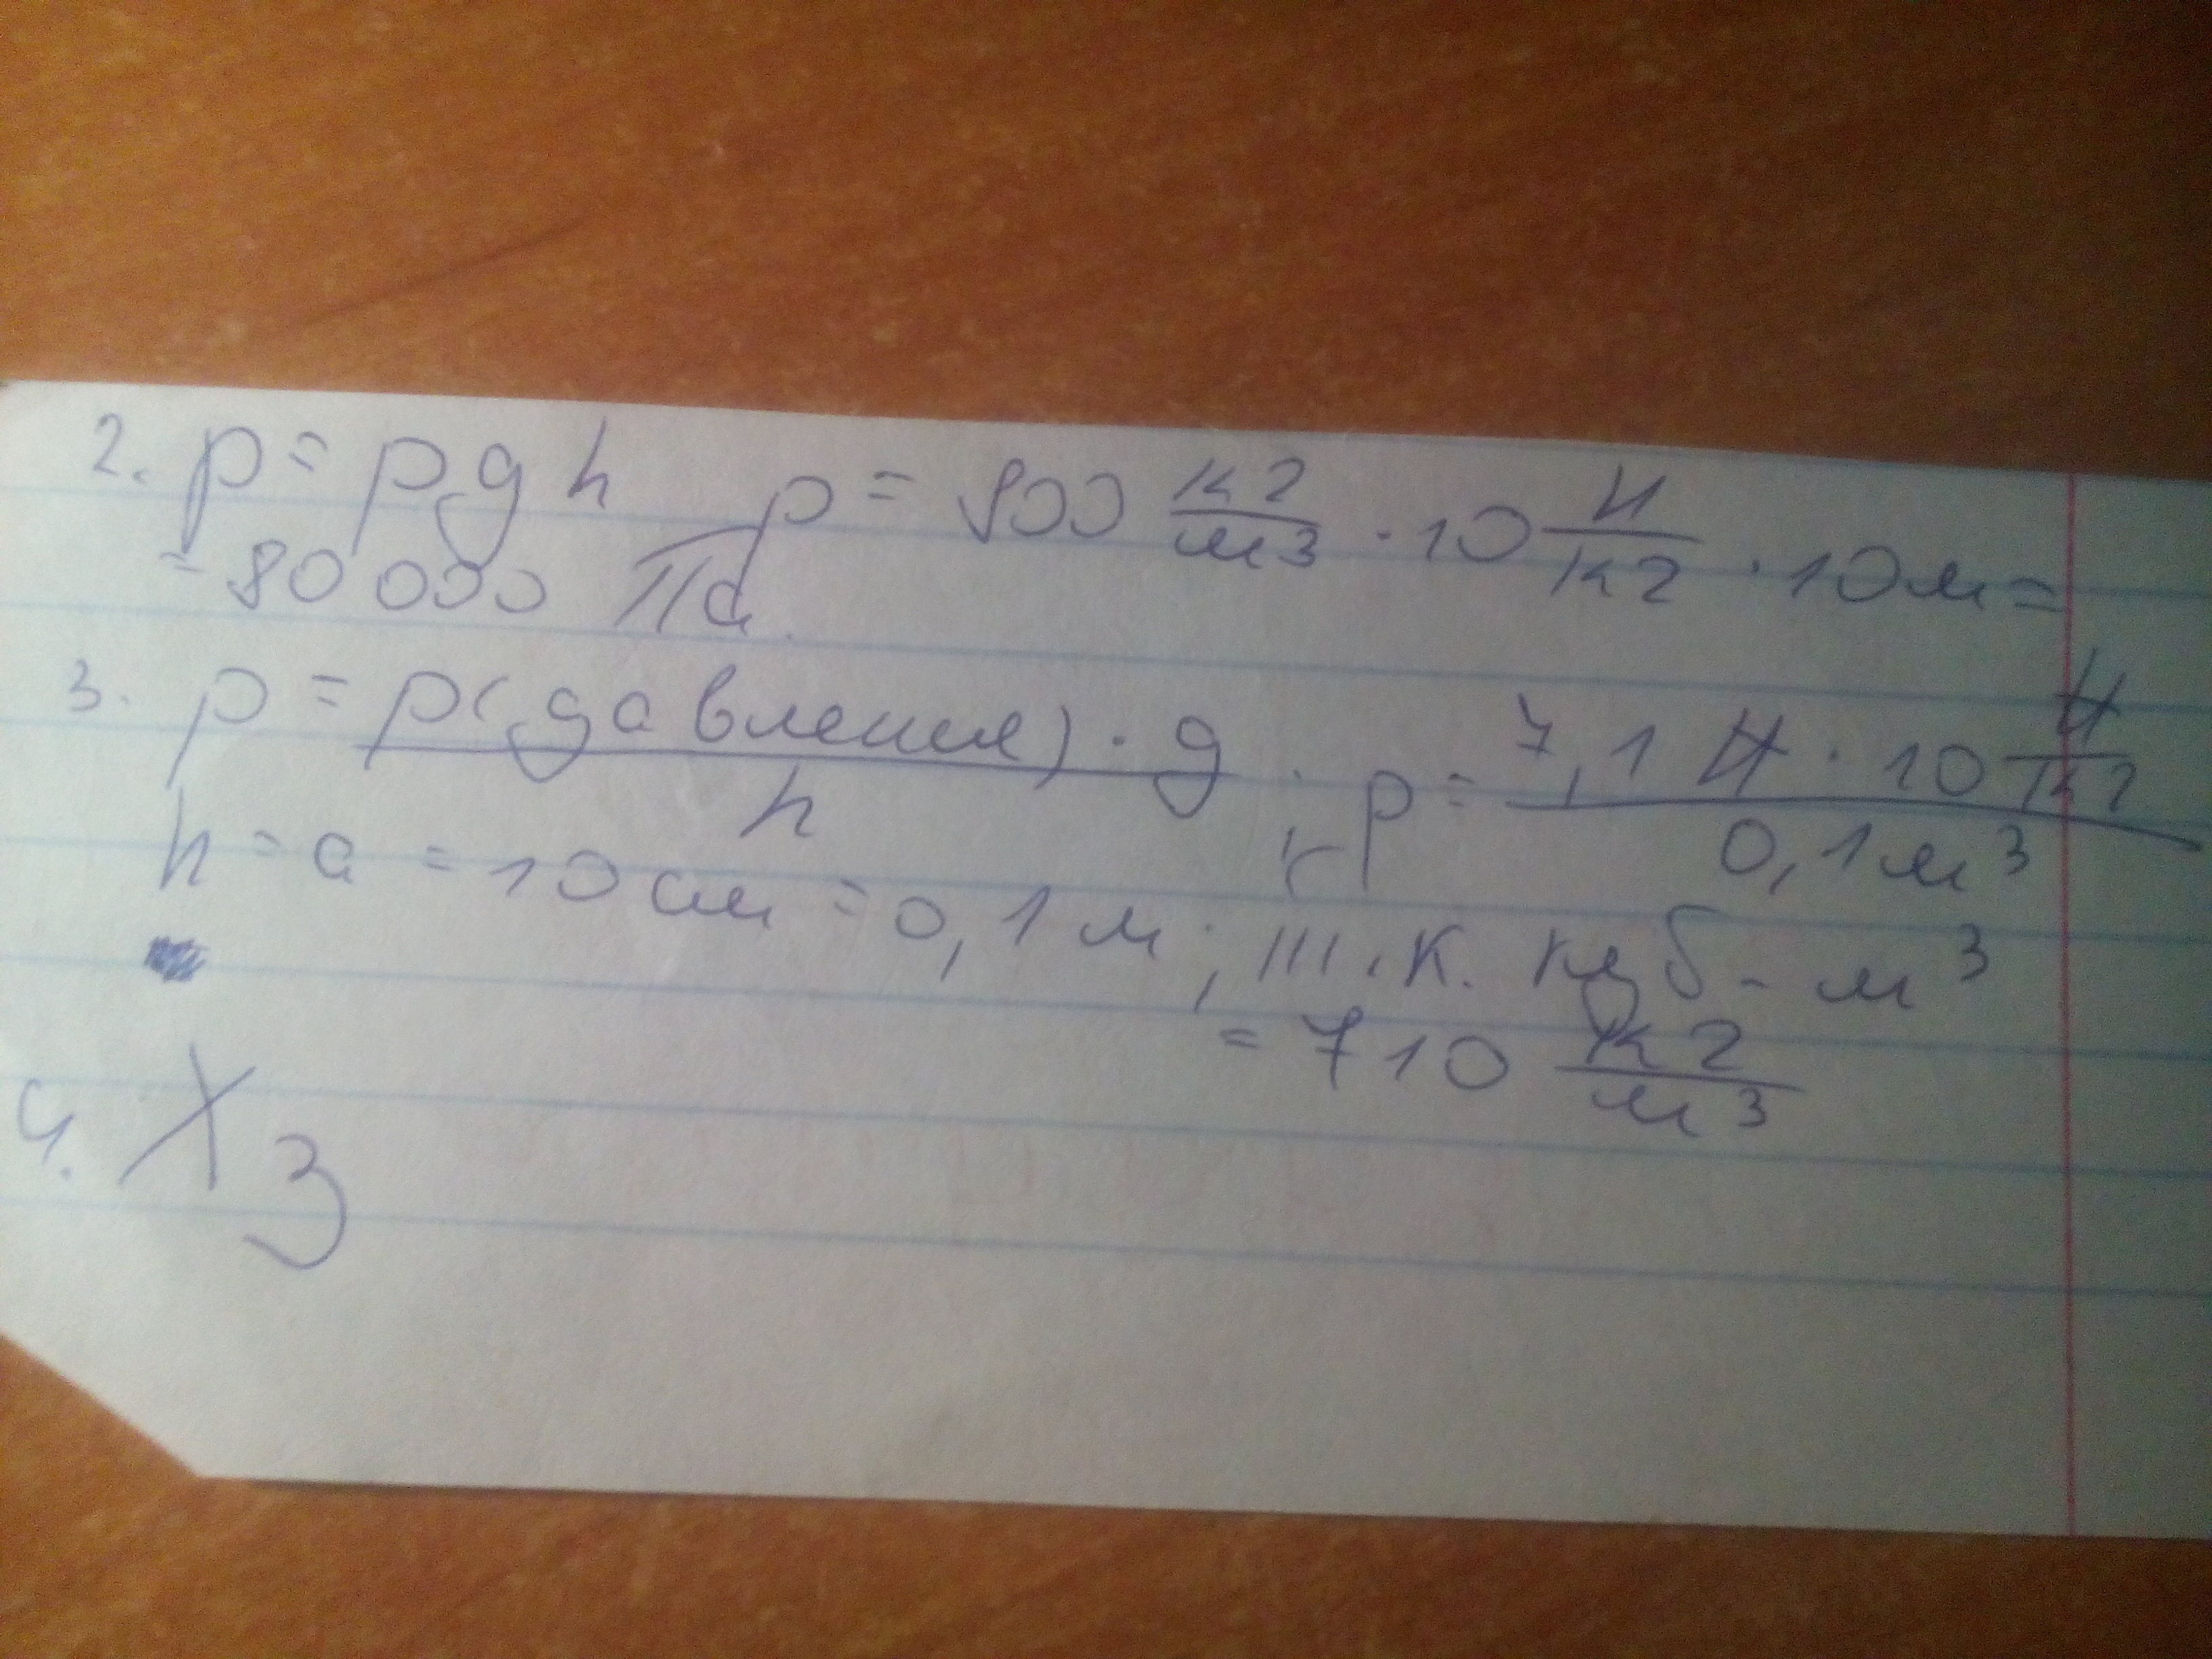 2. p = ρgh p = 800 кг/м3 · 10 Н/кг · 10м =
= 80 000 Па.
3. ρ = p(давления) · g / h . ρ = 7,1 Н · 10 Н/кг / 0,1м3
h = a = 10 см = 0,1 м, т.к. куб - м3
= 710 кг/м3
4. Хз